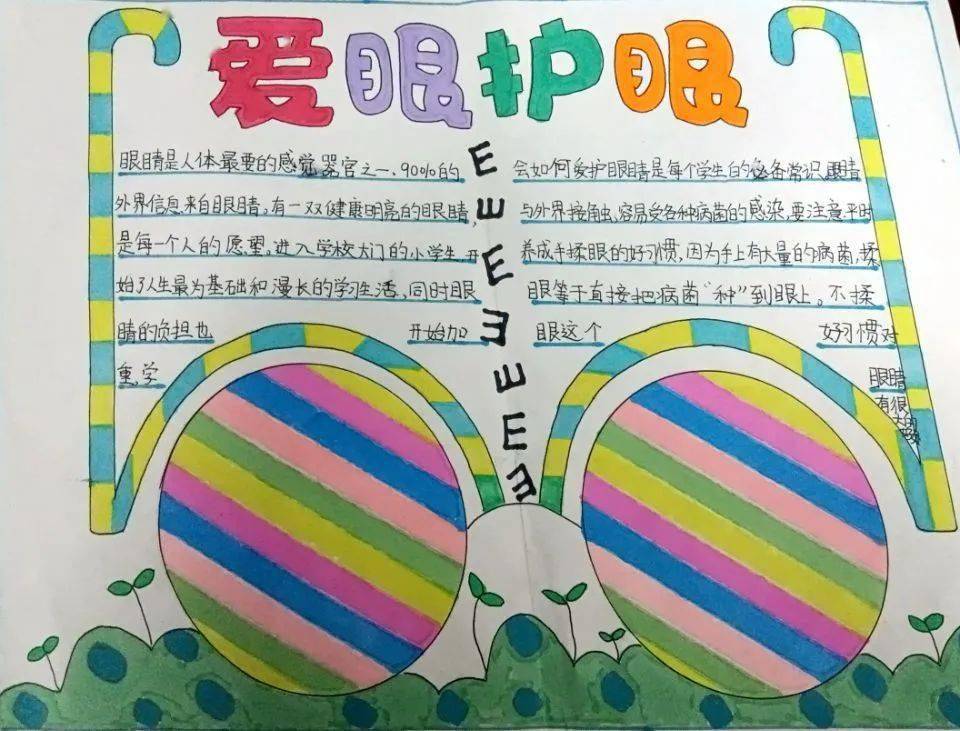 爱眼护眼
眼睛是人体最要的感觉器官之一、90%的
外界信息来自眼睛,有一双健康明亮的眼睛,
是每一个人的愿望。进入学校大门的小学生,开
始了人生最为基础和漫长的学习生活,同时眼
睛的负担也 开始加
重,学
E
E
E
E
E
E
E
会如何爱护眼睛是每个学生的必备常识。眼睛
与外界接角虫,容易受各种病菌的感染,要注意平时
养成手揉眼的好习惯,因为手上有大量的病菌,揉
眼等于直接把病菌“种”到眼上。不揉
眼这个 好习惯对
眼睛
有很
大的